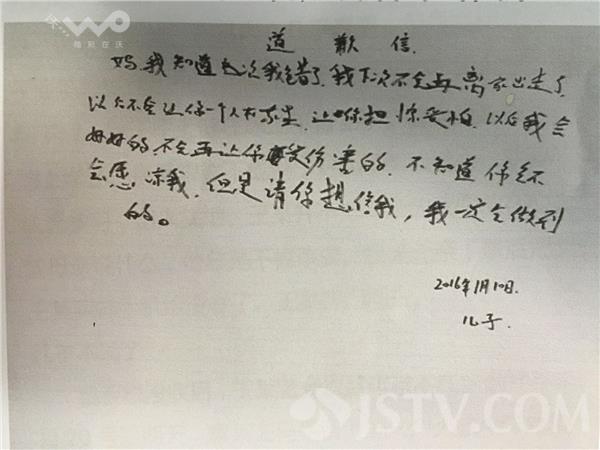 沃...
WO
精彩在沃
道歉信
妈,我知道这次我错了,我下次不会再离家出走了,
以后不会让你一个人在东坐,让你担惊受怕,以后我会
好好的,不会再让你受伤害的,不知道你会不
会愿凉我,但是请你想信我,我一定会做到
的。
2016年1月10日.
儿子.
JSTV.COM